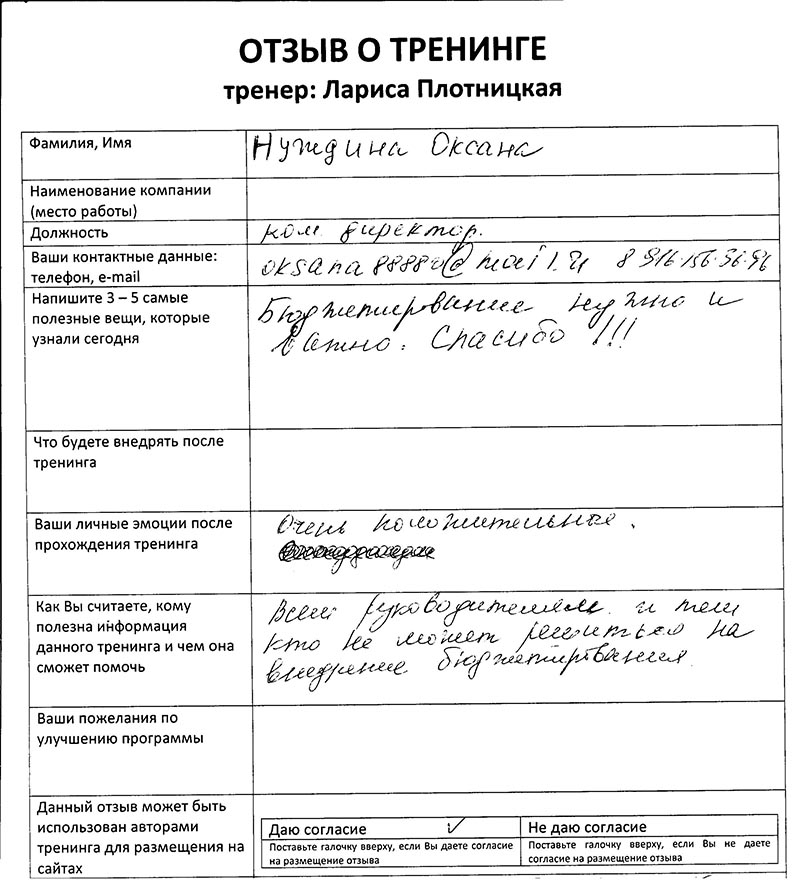 ОТЗЫВ О ТРЕНИНГЕ
тренер: Лариса Плотницкая
Фамилия, Имя
Нуждина Оксана
Наименование компании
(место работы)
Должность
ком. директор.
Ваши контактные данные:
телефон, e-mail
8 916-156-36-96
Напишите 3 – 5 самые
полезные вещи, которые
узнали сегодня
Бюджетирование нужно и
важно. Спасибо !!!
Что будете внедрять после
тренинга
Ваши личные эмоции после
прохождения тренинга
Очень положительные.
Как Вы считаете, кому
полезна информация
данного тренинга и чем она
сможет помочь
Всем руководителям и тем
кто не может решиться на
внедрение бюджетирования
Ваши пожелания по
улучшению программы
Данный отзыв может быть
использован авторами
тренинга для размещения на
сайтах
Даю согласие ✓
Поставьте галочку вверху, если Вы даете согласие
на размещение отзыва
Не даю согласие
Поставьте галочку вверху, если Вы не даете
согласие на размещение отзыва